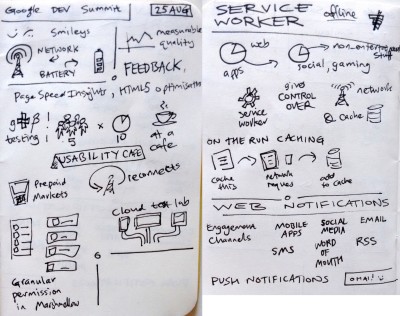 Google DEV Summit
25 AUG
Smileys
NETWORK
BATTERY
measurable
quality
FEEDBACK,
PageSpeed Insights, HTML5 optimisations
testing
5
x
10
at a
cafe
USABILITY CAFE
Prepaid
Markets
reconnects
cloud test lab
Granular
permission
in Marshmallow
6
SERVICE
WORKER
offline
web
apps
social, gaming
service
worker
gives
CONTROL
OVER
network
& Cache
ON THE RUN CACHING
cache
this
return
request
add
to cache
WEB NOTIFICATIONS
Engagement
Channels
MOBILE
APPS
SOCIAL
MEDIA
EMAIL
SMS
WORD
OF
MOUTH
RSS
PUSH NOTIFICATIONS
OHAI!